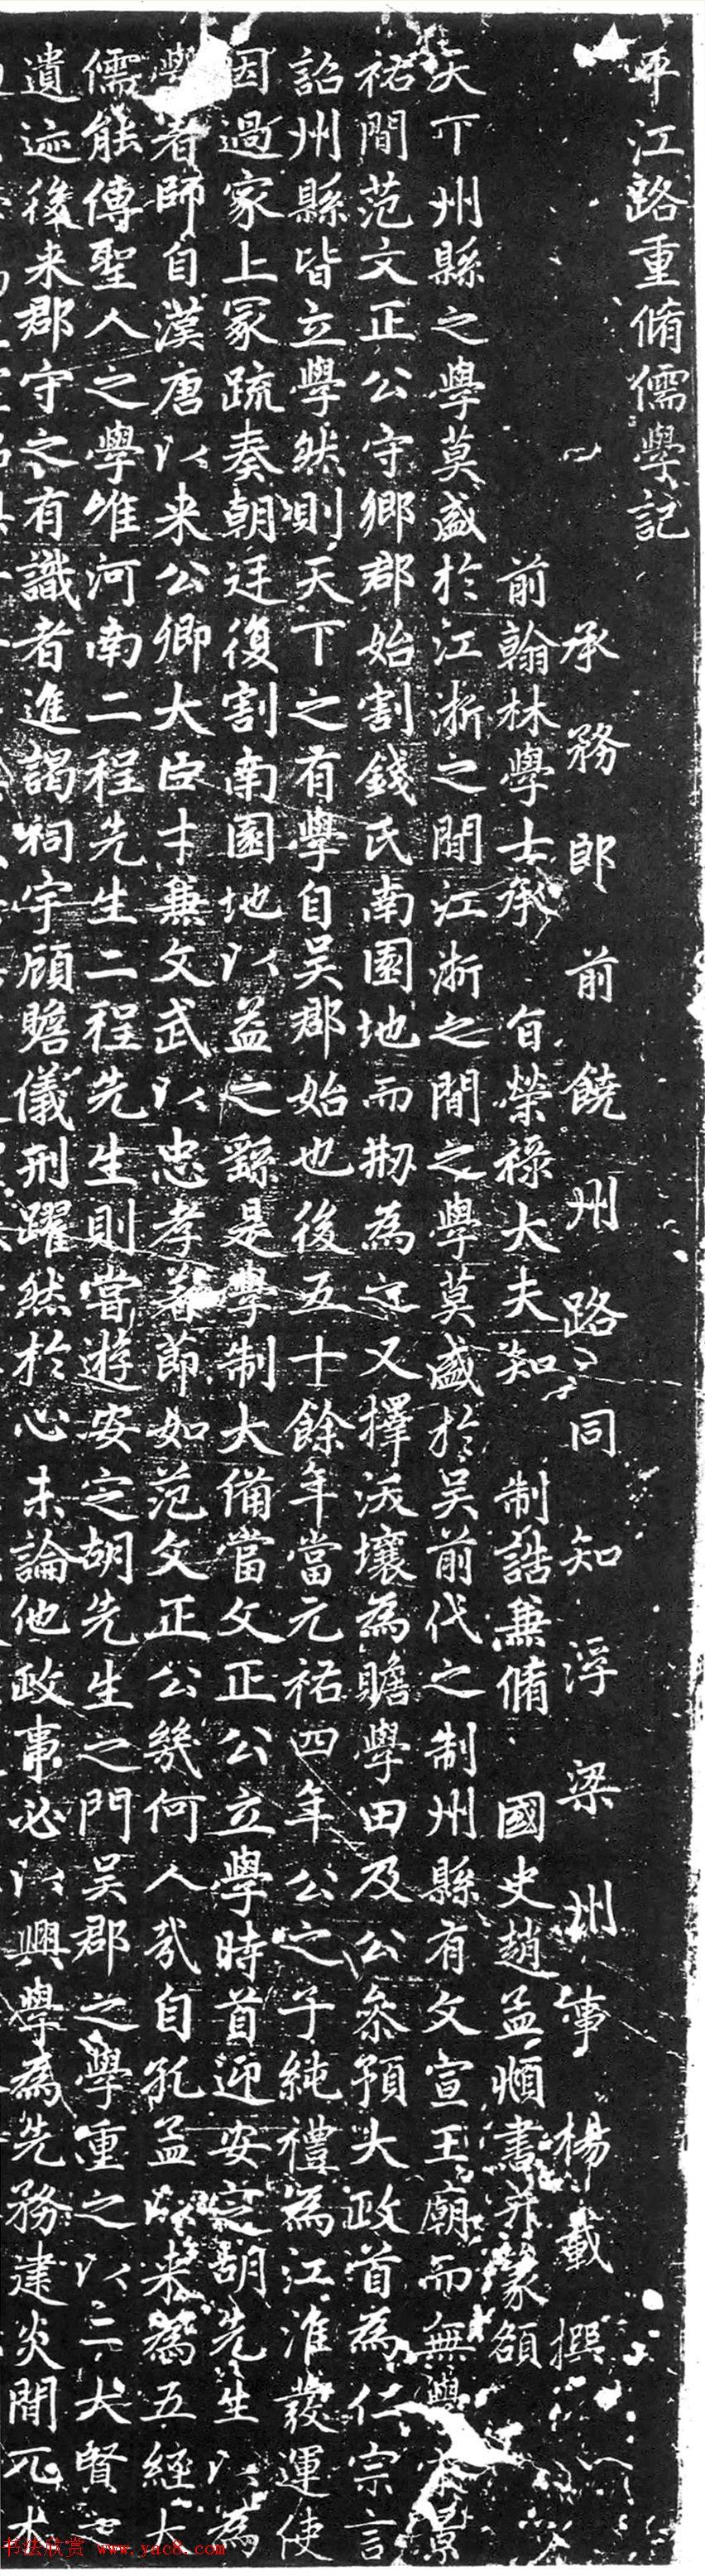 平江路重脩儒學記
承務郎前饒州路同知浮梁州事楊載撰
前翰林學士承旨榮祿大夫知制誥兼脩國史趙孟頫書并篆額
天下州縣之學莫盛於江浙之間江浙之間之學莫盛於吳前代之制州縣有文宣王廟而無學宋景
祐間范文正公守鄉郡始割錢氏南園地而剏為之又擇沃壤為贍學田及公叅預大政首為仁宗言
詔州縣皆立學然則天下之有學自吳郡始也後五十餘年當元祐四年公之子純禮為江淮發運使
因過家上冢疏奏朝廷復割南園地以益之繇是學制大備當文正公立學時首迎安定胡先生以為
學者師自漢唐以来公卿大臣才兼文武以忠孝著節如范文正公幾何人哉自孔孟以来為五經大
儒能傳聖人之學惟河南二程先生二程先生則嘗遊安定胡先生之門吳郡之學重之以二大賢之
遺迹後来郡守之有識者進謁祠宇顧瞻儀刑躍然於心未論他政事必以興學為先務建炎間兀朮
书法欣赏 www.yac8.com